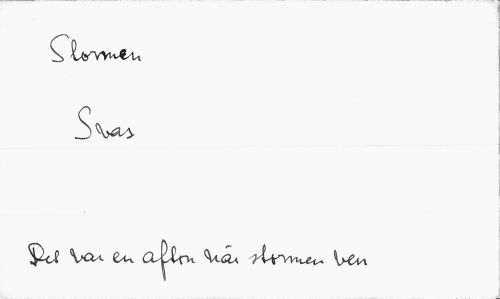 Stormen
Svas
Det var en afton när stormen ven